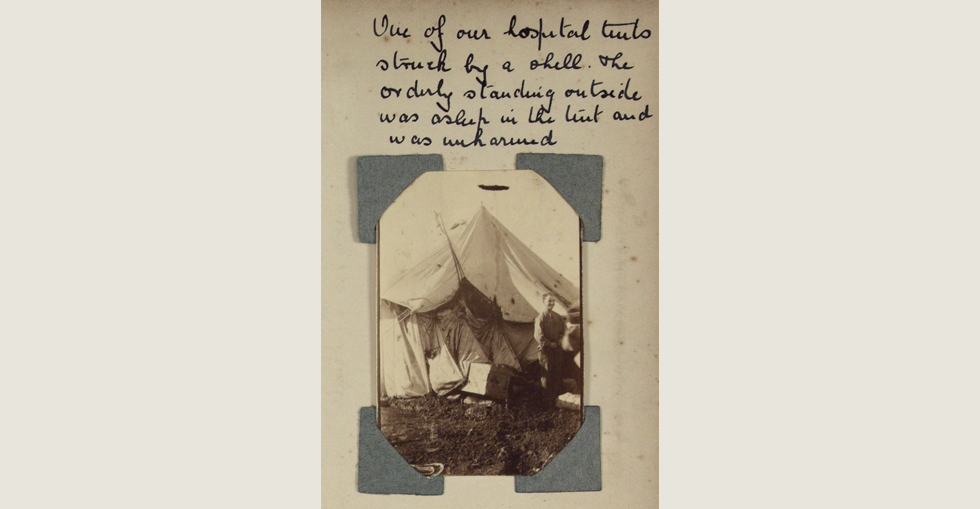 One of our hospital tents
struck by a shell. The
orderly standing outside
was asleep in the tent and
was unharmed